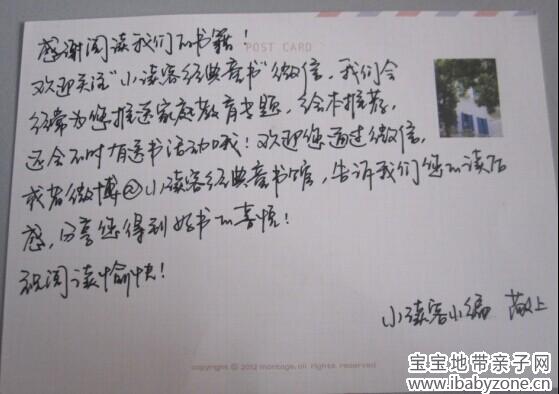 POST CARD
感谢阅读我们的书籍!
欢迎关注“小读客经典童书”微信,我们会
经常为您推送家庭教育专题,绘本推荐,
还会不时有送书活动哦!欢迎您通过微信,
或者微博@小读客经典童书馆,告诉我们您的读后
感,分享您得到好书的喜悦!
祝阅读愉快!
小读客小编 敬上
copyright © 2012 montage, all rights reserved.
宝宝地带亲子网
www.ibabyzone.cn